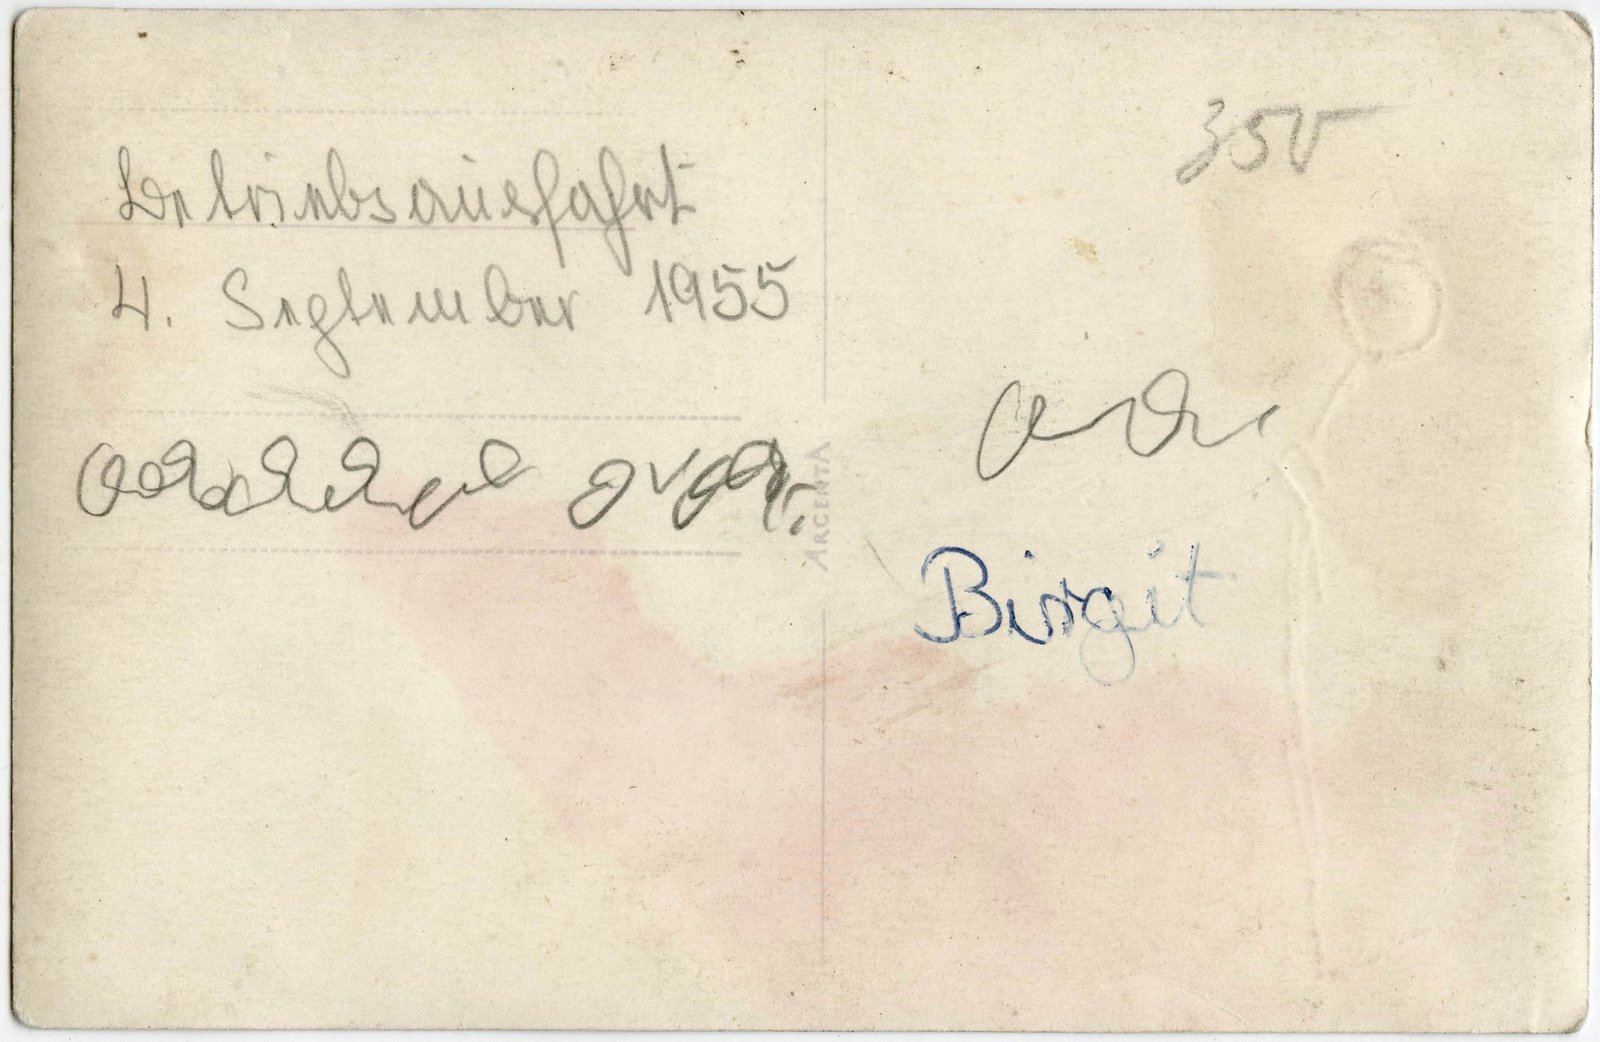 Betriebsausfahrt
4. September 1955
350
ARGENTA
Birgit